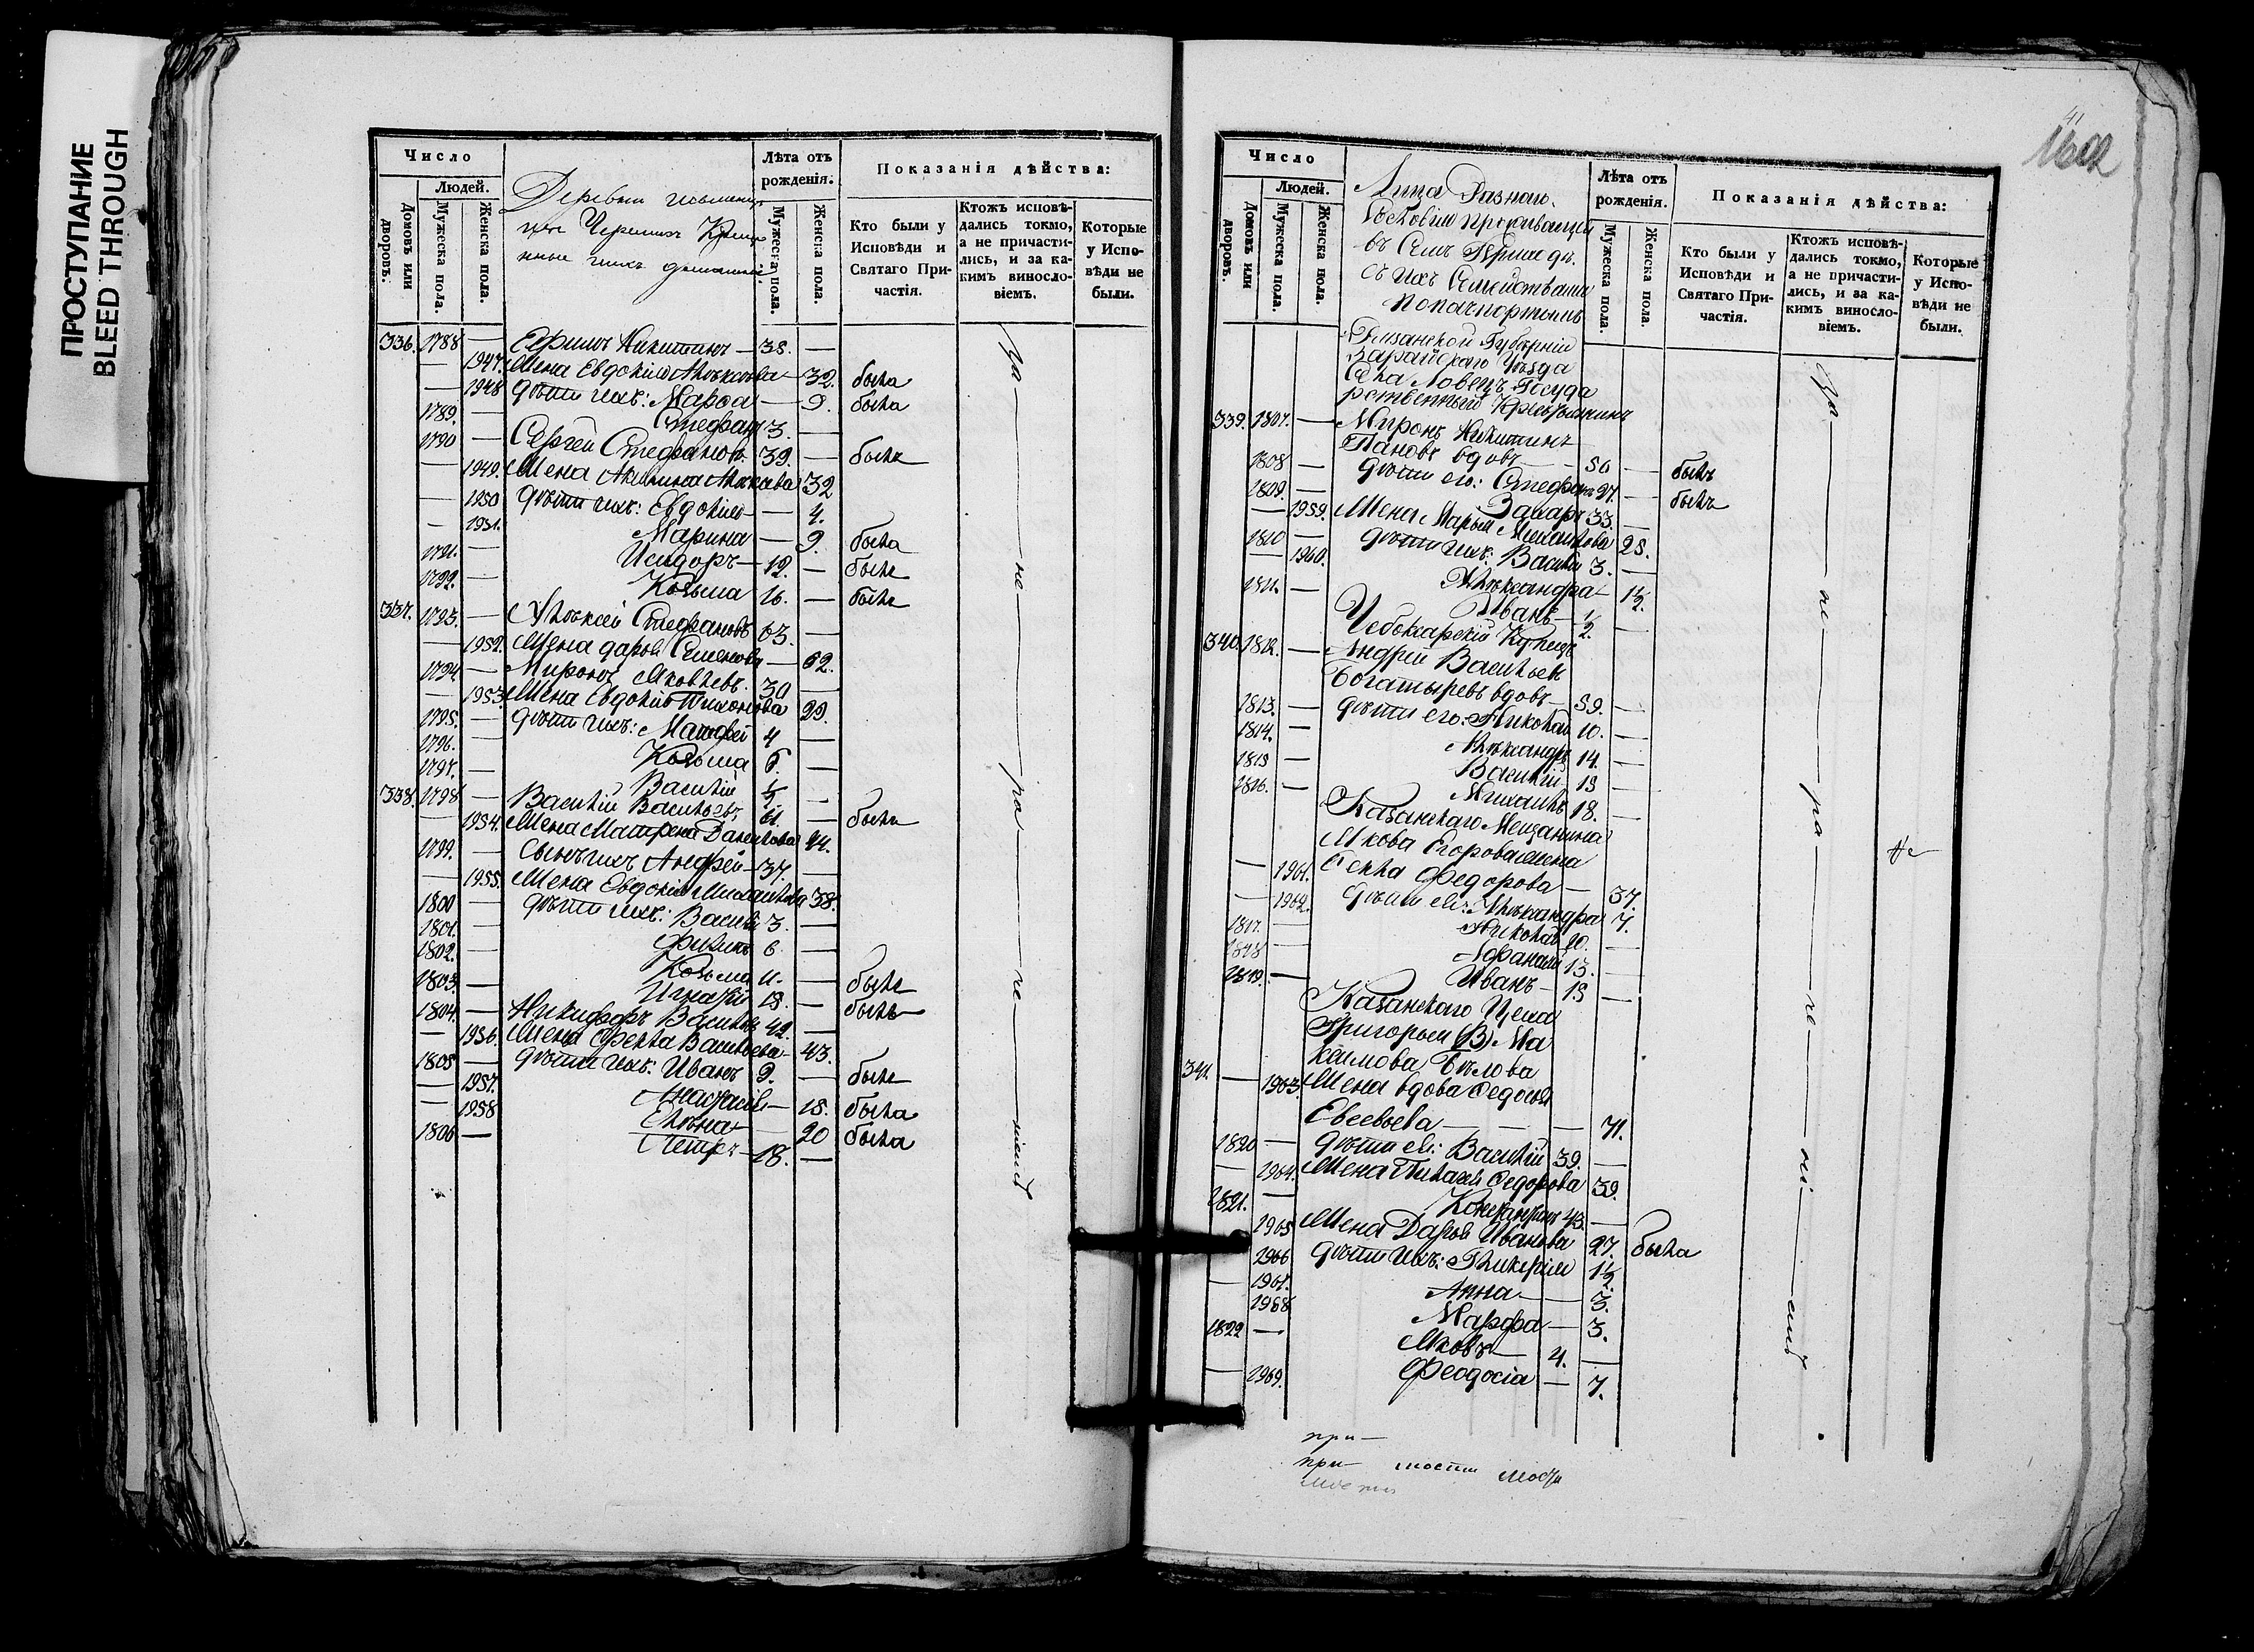 ПРОСТУПАНИЕ
BLEED THROUGH
Число
Людей.
Домовъ или дворовъ.
Мужеска пола.
Женска пола.
Деревни
Черемисъ
Лѣта отъ рожденія.
Мужеска пола.
Женска пола.
Показанія дѣйства:
Кто были у Исповѣди и Святаго Причастія.
Ктожъ исповѣдались токмо, а не причастились, и за какимъ винословіемъ.
Которые у Исповѣди не были.
336. 1788 — Ефимъ Никитинъ — 38. —
— 1947. Жена Евдокия Алексѣева — 32. была
— 1948 дѣти ихъ: Марфа — 9. была
1789. — Стефанъ 3. —
1790 — Сергей Стефановъ 39. — былъ
— 1949. Жена Акилина 32
— 1950 дѣти ихъ: Евдокия — 4.
— 1951. Марина — 9. была
1791. — Исидоръ — 12. — былъ
1792. — Козьма 16. — былъ
337. 1793. — Алексѣй Стефановъ 63. —
— 1952. Жена Дарья Семенова — 62.
1794 — Миронъ Яковлевъ. 30 —
— 1953. Жена Евдокия Тихонова 29.
1795. — дѣти ихъ: Матфей 4 —
1796. — Козьма 6. —
1797. — Василій ½ —
338. 1798 — Василій Васильевъ 61. — былъ
— 1954. Жена Матрена Данилова 44.
1799. — Сынъ ихъ Андрей — 37. —
— 1955. Жена Евдокия Михайлова 38.
1800 — дѣти ихъ: Василій 3. —
1801. — Филипъ 6 —
1802. — Козьма 11. — былъ
1803. — Игнатій 18. — былъ
1804. — Никифоръ Васильевъ 42. —
— 1956. Жена Фекла Васильева — 43.
1805 — дѣти ихъ: Иванъ 9. — былъ
— 1957. Анастасія — 18. была
— 1958 Елена — 20 была
1806 — Петръ — 18. —
1602
41
Число
Людей.
Домовъ или дворовъ.
Мужеска пола.
Женска пола.
Лица Разнаго
Сословія проживающія
въ Селѣ
съ ихъ Семействами
по пачпортымъ
Лѣта отъ рожденія.
Мужеска пола.
Женска пола.
Показанія дѣйства:
Кто были у Исповѣди и Святаго Причастія.
Ктожъ исповѣдались токмо, а не причастились, и за какимъ винословіемъ.
Которые у Исповѣди не были.
Рязанской Губерніи
Зарайского Уѣзда
Села Ловецъ Государственный Крестьянинъ
339. 1807. — Миронъ Никитинъ
Пановъ вдовъ — 50 — былъ
1808 — дѣти его: Стефанъ 27. — былъ
1809. — Захаръ 33. —
— 1959. Жена Марья Михайлова 28.
1810 — дѣти ихъ: Василій 3. —
— 1960. Александра — 1½.
1811. — Иванъ — ½. —
Чебоксарскій Купецъ
340. 1812. — Андрей Васильевъ
Богатыревъ вдовъ — 59. —
1813. — дѣти его: Николай 10. —
1814. — Александръ 14. —
1815 — Василій 15 —
1816. — Михаилъ 18. —
Казанскаго Мещанина
Якова Егорова жена
— 1961. Фекла Федорова — 37.
— 1962. дѣти ея: Александра 7.
1817. — Николай 10. —
1818 — Афанасій 13. —
1819. — Иванъ — 15 —
Казанскаго Цеха
Григорья (В) Максимова Бѣлова
341. — 1963. Жена вдова Федосья
Евсевьева — — — 71.
1820 — дѣти ея: Василій 39. —
— 1964. Жена Пелагея Федорова 39.
1821. — 43. —
1965 Жена Дарья Иванова 27. была
1966 дѣти ихъ: Гликерія 1½.
— 1967. Анна — 3.
1968 Марфа — 3.
1822 — Яковъ — 4. —
— 1969. Феодосія — 7.
при —
при —